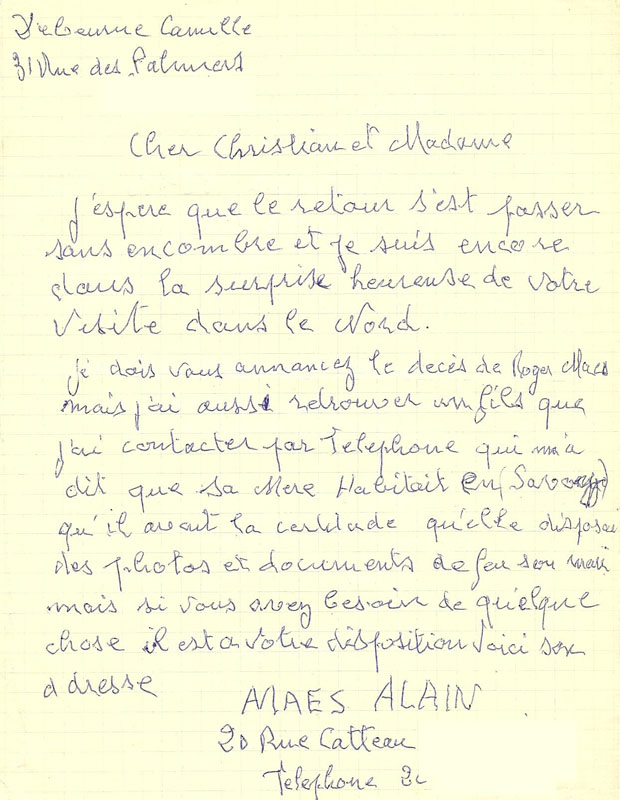 Debeurne Camille
31 Rue des Palmiers
Cher Christian et Madame
j'espere que le retour s'est passer
sans encombre et je suis encore
dans la surprise heureuse de votre
Visite dans le Nord.
je dois vous annancez le decès de Roger Maes
mais j'ai aussi retrouver un fils que
j'ai contacter par Telephone qui m'a
dit que sa Mere Habitait en (Savoye)
qu'il avait la certitude qu'elle disposai
des photos et documents de feu son mari
mais si vous avez besoin de quelque
chose il est a votre disposition Voici son
adresse
MAES ALAIN
20 Rue Catteau
Telephone